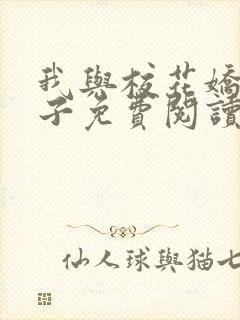 我與校花嬌
子免費閱讀
仙人球與猫七